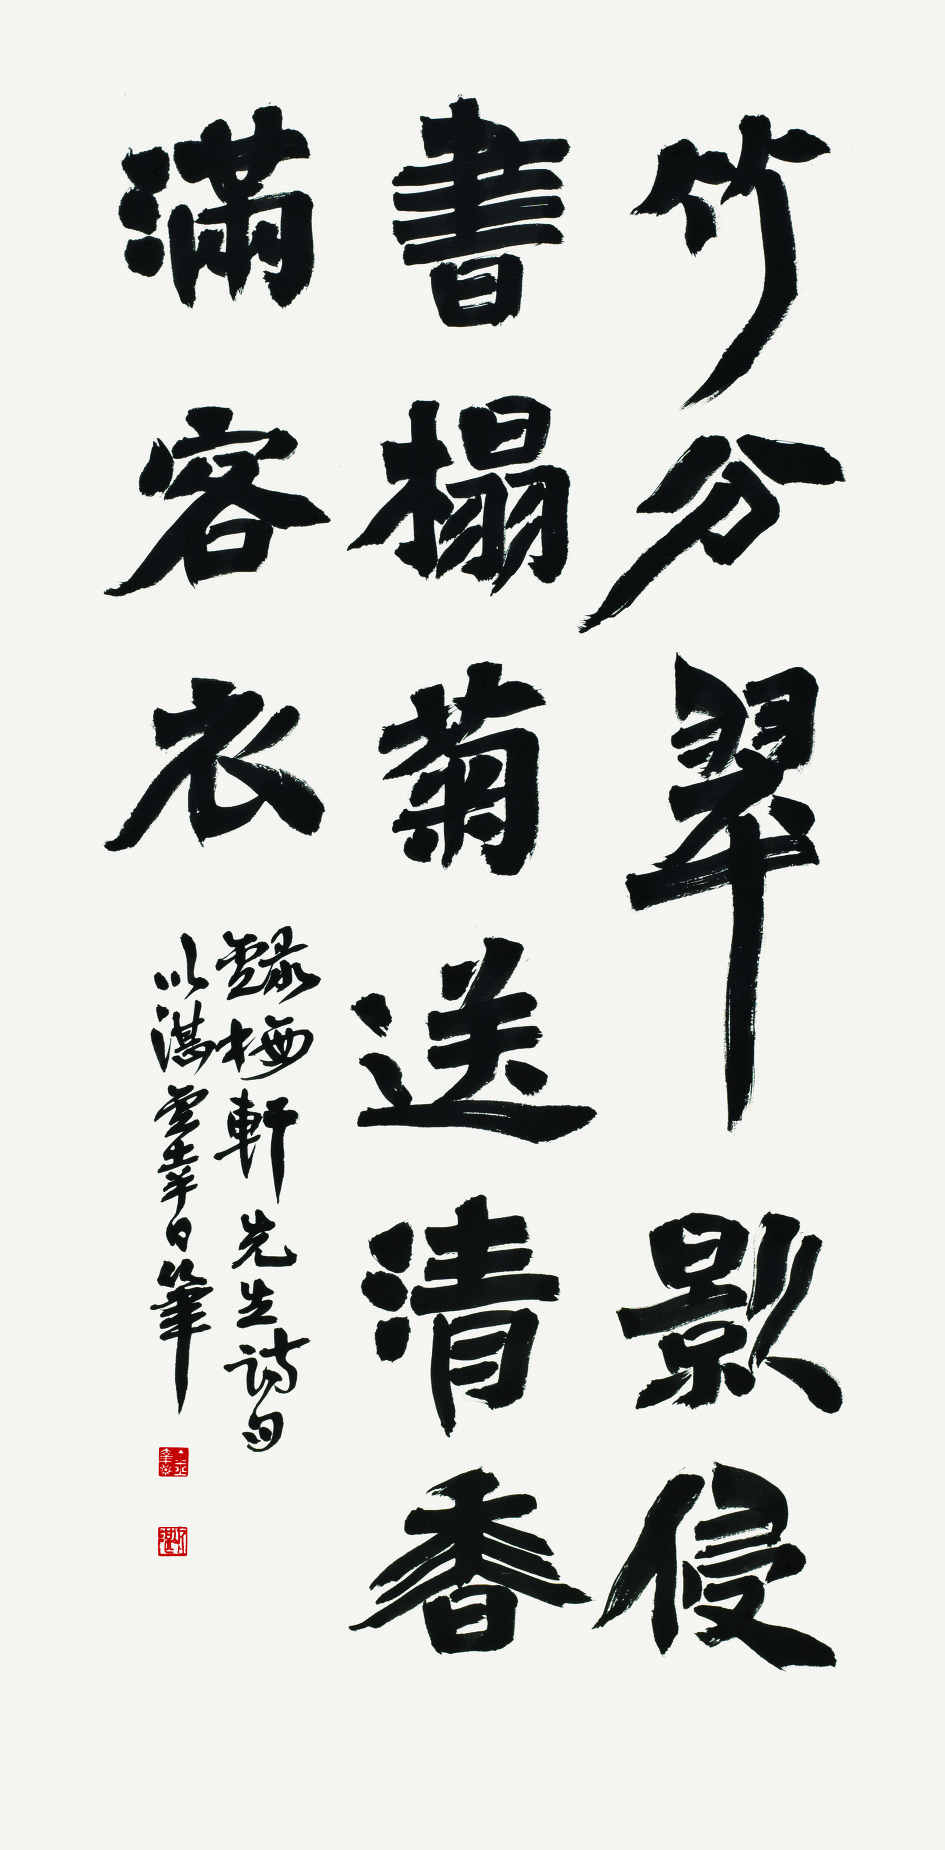 竹分翠影侵
書榻菊送清香
滿客衣
錄梅軒先生詩句
以湛雲峯日筆